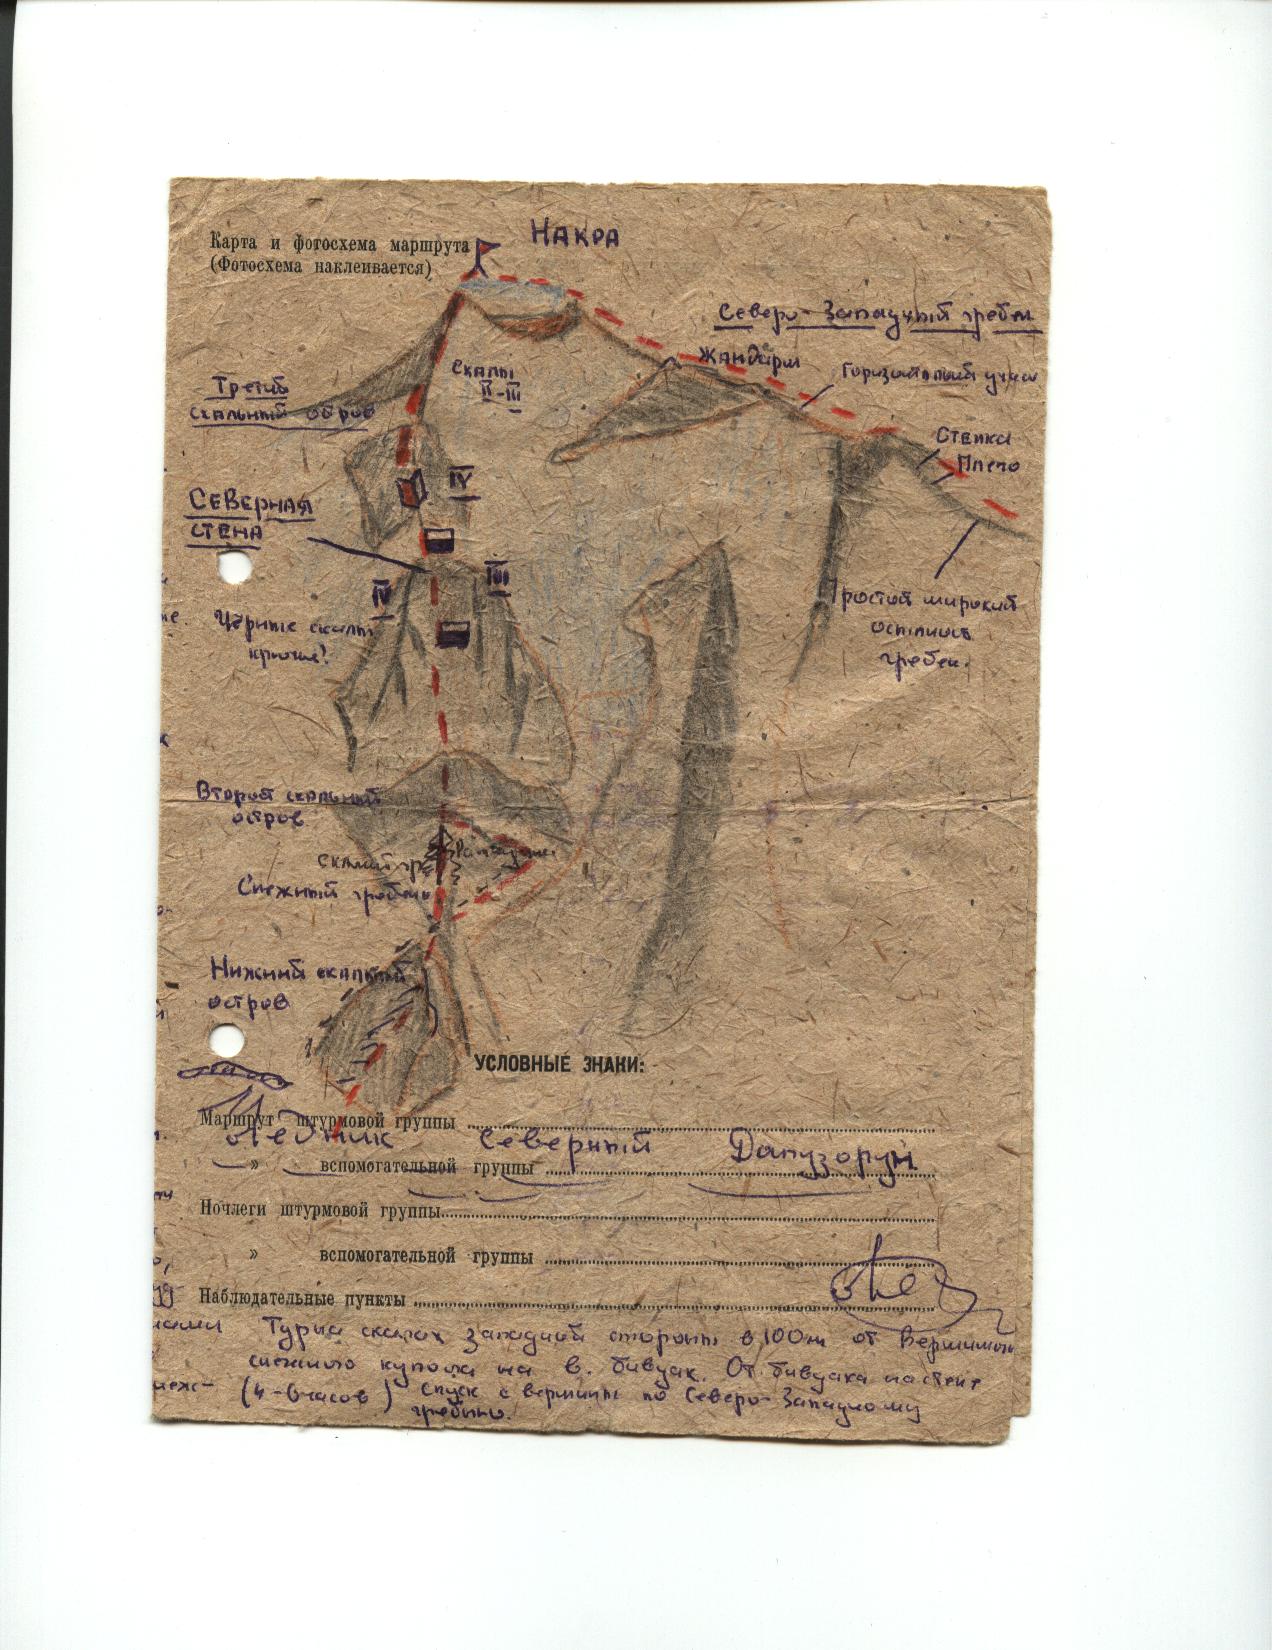 Карта и фотосхема маршрута
(Фотосхема наклеивается)
НАКРА
Северо-Западный гребень
Жандарм
Горизонтальный
Скалы
II-III
Третий
скальный остров
Стенка
Плечо
IV
Северная
стена
III
IV
Чёрные скалы
крючья!
Простой широкий
гребен.
Второй скальный
остров
Снежный гребень
Нижний скальный
остров
УСЛОВНЫЕ ЗНАКИ:
Маршрут штурмовой группы
Ледник Северный Донгузорун
» вспомогательной группы
Ночлеги штурмовой группы
» вспомогательной группы
Наблюдательные пункты
Тур на скалах западной стороны в 100 м от вершинного
снежного купола на в. бивуак. От бивуака на стене
(4-6 часов) спуск с вершины по Северо-Западному
гребню.